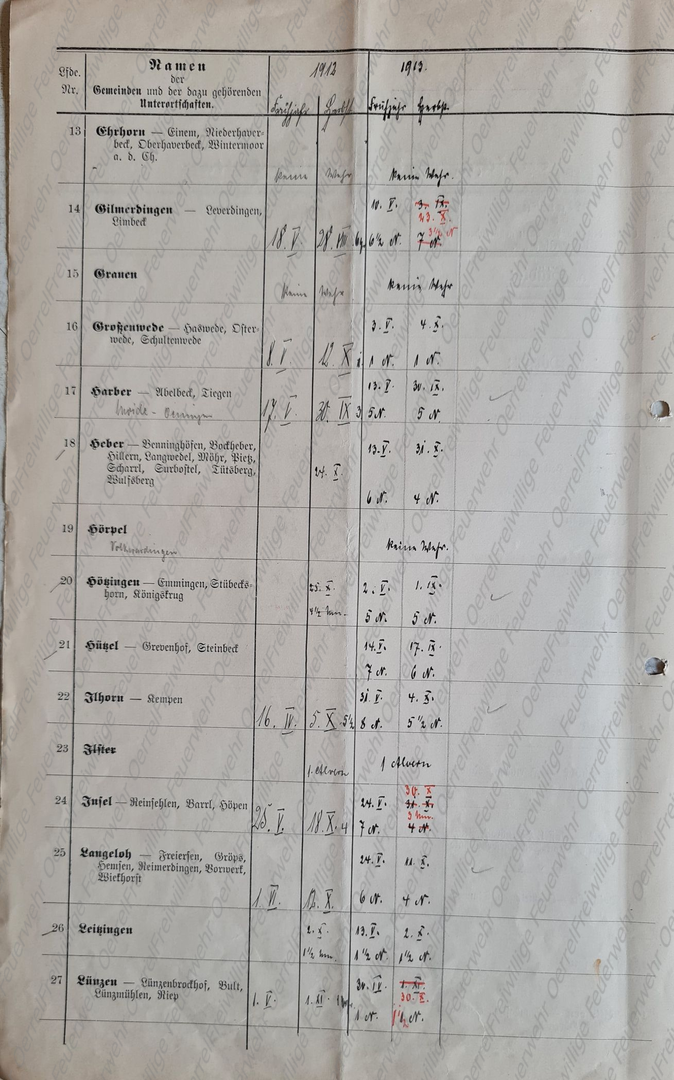 Lfde.
Nr.
Namen
der
Gemeinden und der dazu gehörenden
Unterortschaften.
1912 1913.
Frühjahr Herbst Frühjahr Herbst.
13 Ehrhorn — Einem, Niederhaver-
beck, Oberhaverbeck, Wintermoor
a. d. Ch.
keine Wehr keine Wehr.
14 Gilmerdingen — Leverdingen,
Limbeck
10. V. 3. IX.
23. X.
3½ N
18 V 28 VIII 6½ N. 7 N.
15 Grauen
keine Wehr keine Wehr
16 Großenwede — Haswede, Oster-
wede, Schultenwede
3. V. 4. X.
8. V 12 X 1 N. 1 N.
17 Harber — Abelbeck, Tiegen
13. V. 30. IX.
17. V 30. IX 3 5 N. 5 N.
18 Heber — Benninghöfen, Bockheber,
Hillern, Langwedel, Möhr, Pietz,
Scharrl, Surbostel, Tütsberg,
Wulfsberg
13. V. 31. X.
24. X.
6 N. 4 N.
19 Hörpel
Volkwardingen
keine Wehr.
20 Hötzingen — Emmingen, Stübecks-
horn, Königskrug
25. X. 2. V. 1. IX.
4½ Uhr. 5 N. 5 N.
21 Hützel — Grevenhof, Steinbeck
14. V. 17. IX.
7 N. 6 N.
22 Ilhorn — Kempen
31. V. 4. X.
16. IV. 5. X 5½ 8 N. 5½ N.
23 Ilster
1 Alvern 1 Alvern
24 Insel — Reinsehlen, Barrl, Höpen
30. X
24. V. 31. X.
3 Uhr.
25. V. 18 X. 4 7 N. 4 N.
25 Langeloh — Freiersen, Gröps,
Hemsen, Reimerdingen, Vorwerk,
Wiekhorst
24. V. 11. X.
1. VI 12. X. 6 N. 4 N.
26 Leitzingen
2. X. 13. V. 2. X.
1½ Uhr. 1½ N. 1½ N.
27 Lünzen — Lünzenbrockhof, Bult,
Lünzmühlen, Riep
30. IV 1. XI.
30. X.
1. V. 1. XI. 1 N. 1 N.
Freiwillige Feuerwehr Oerrel